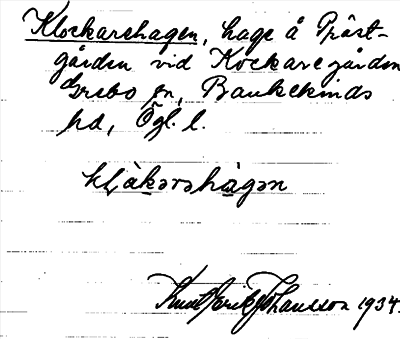 Klockarehagen, hage å Präst-
gården vid Kockaregården
Grebo sn, Bankekinds
hd, Ögl. l.
kḷåkarəhagən
Knut Erik Johansson 1934.